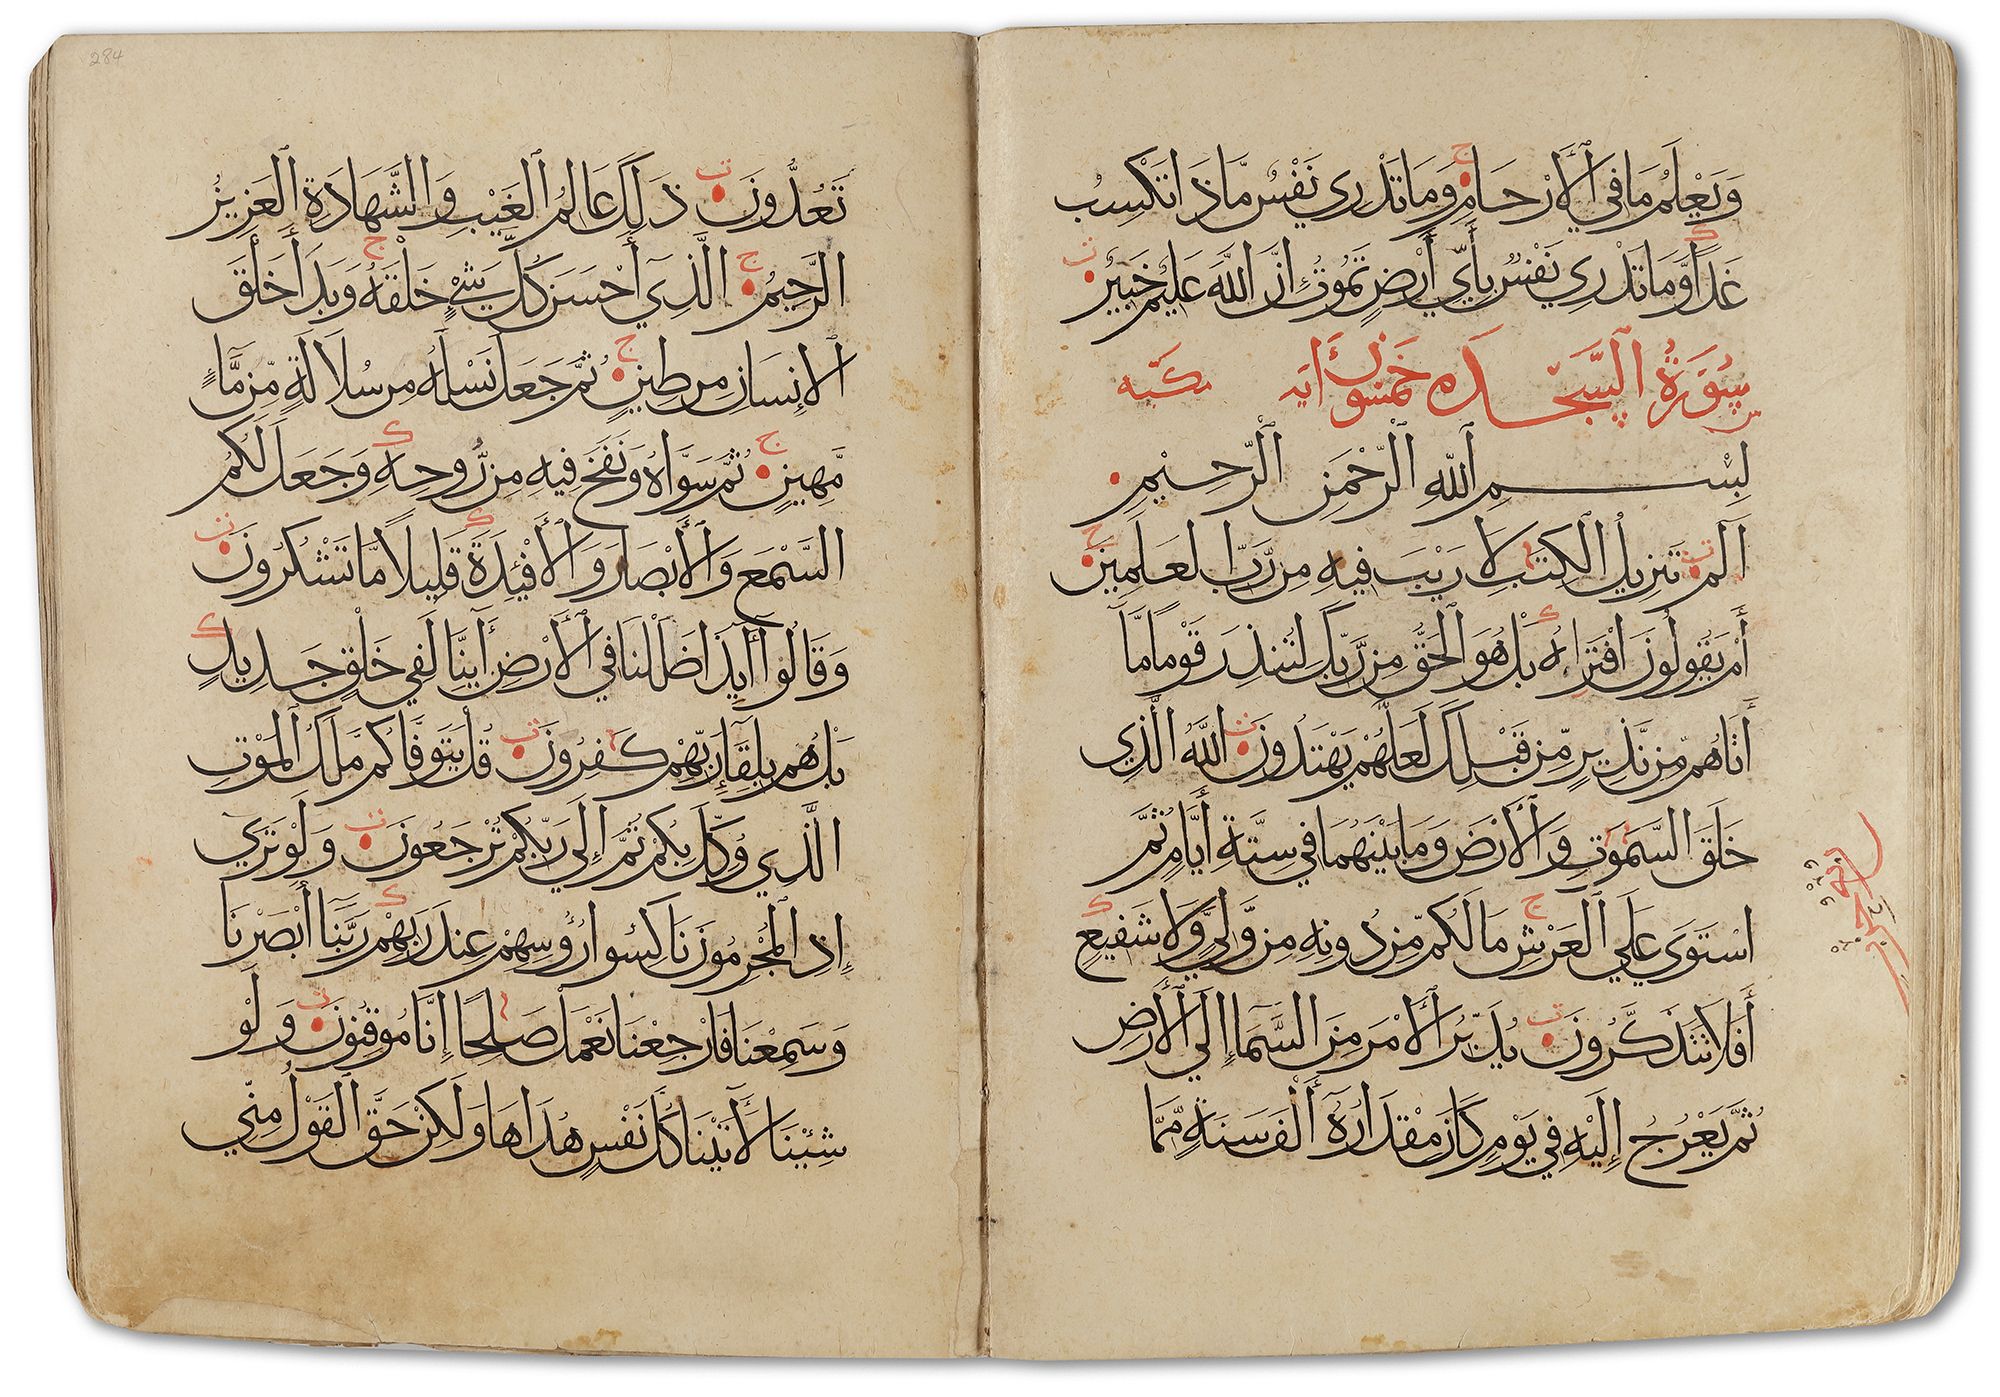 وَيَعْلَمُ مَا فِي الْأَرْحَامِ ج وَمَا تَدْرِي نَفْسٌ مَّاذَا تَكْسِبُ
غَدًا ك وَّمَا تَدْرِي نَفْسٌ بِأَيِّ أَرْضٍ تَمُوتُ إِنَّ اللَّهَ عَلِيمٌ خَبِيرٌ ت
سُورَةُ السَّجْدَه خمسون آيه مكيه
بِسْمِ اللَّهِ الرَّحْمَنِ الرَّحِيمِ
الم ت تَنزِيلُ الْكِتَبِ لَا رَيْبَ فِيهِ مِن رَّبِّ الْعَلَمِينَ ج
أَمْ يَقُولُونَ افْتَرَاهُ ك بَلْ هُوَ الْحَقُّ مِن رَّبِّكَ لِتُنذِرَ قَوْمًا مَّا
أَتَاهُم مِّن نَّذِيرٍ مِّن قَبْلِكَ لَعَلَّهُمْ يَهْتَدُونَ ت اللَّهُ الَّذِي
خَلَقَ السَّمَوَتِ وَالْأَرْضَ وَمَا بَيْنَهُمَا فِي سِتَّةِ أَيَّامٍ ثُمَّ
اسْتَوَى عَلَى الْعَرْشِ ج مَا لَكُم مِّن دُونِهِ مِن وَّلِيٍّ وَّلَا شَفِيعٍ ك
أَفَلَا تَتَذَكَّرُونَ ت يُدَبِّرُ الْأَمْرَ مِنَ السَّمَاءِ إِلَى الْأَرْضِ
ثُمَّ يَعْرُجُ إِلَيْهِ فِي يَوْمٍ كَانَ مِقْدَارُهُ أَلْفَ سَنَةٍ مِّمَّا
284
تَعُدُّونَ ت ذَلِكَ عَالِمُ الْغَيْبِ وَالشَّهَادَةِ الْعَزِيزُ
الرَّحِيمُ ج الَّذِي أَحْسَنَ كُلَّ شَيْءٍ خَلْقَهُ ج وَبَدَأَ خَلْقَ
الْإِنسَانِ مِن طِينٍ ج ثُمَّ جَعَلَ نَسْلَهُ مِن سُلَالَةٍ مِّن مَّاءٍ
مَّهِينٍ ج ثُمَّ سَوَّاهُ وَنَفَخَ فِيهِ مِن رُّوحِهِ ك وَجَعَلَ لَكُمُ
السَّمْعَ وَالْأَبْصَارَ وَالْأَفْئِدَةَ ك قَلِيلًا مَّا تَشْكُرُونَ ت
وَقَالُوا أَئِذَا ضَلَلْنَا فِي الْأَرْضِ أَئِنَّا لَفِي خَلْقٍ جَدِيدٍ ك
بَلْ هُم بِلِقَاءِ رَبِّهِمْ كَفِرُونَ ت قُلْ يَتَوَفَّاكُم مَّلَكُ الْمَوْتِ
الَّذِي وُكِّلَ بِكُمْ ثُمَّ إِلَى رَبِّكُمْ تُرْجَعُونَ ت وَلَوْ تَرَى
إِذِ الْمُجْرِمُونَ نَاكِسُوا رُؤُسِهِمْ عِندَ رَبِّهِمْ ك رَبَّنَا أَبْصَرْنَا
وَسَمِعْنَا فَارْجِعْنَا نَعْمَلْ صَالِحًا إِنَّا مُوقِنُونَ ت وَلَوْ
شِئْنَا لَأَتَيْنَا كُلَّ نَفْسٍ هُدَاهَا وَلَكِنْ حَقَّ الْقَوْلُ مِنِّي